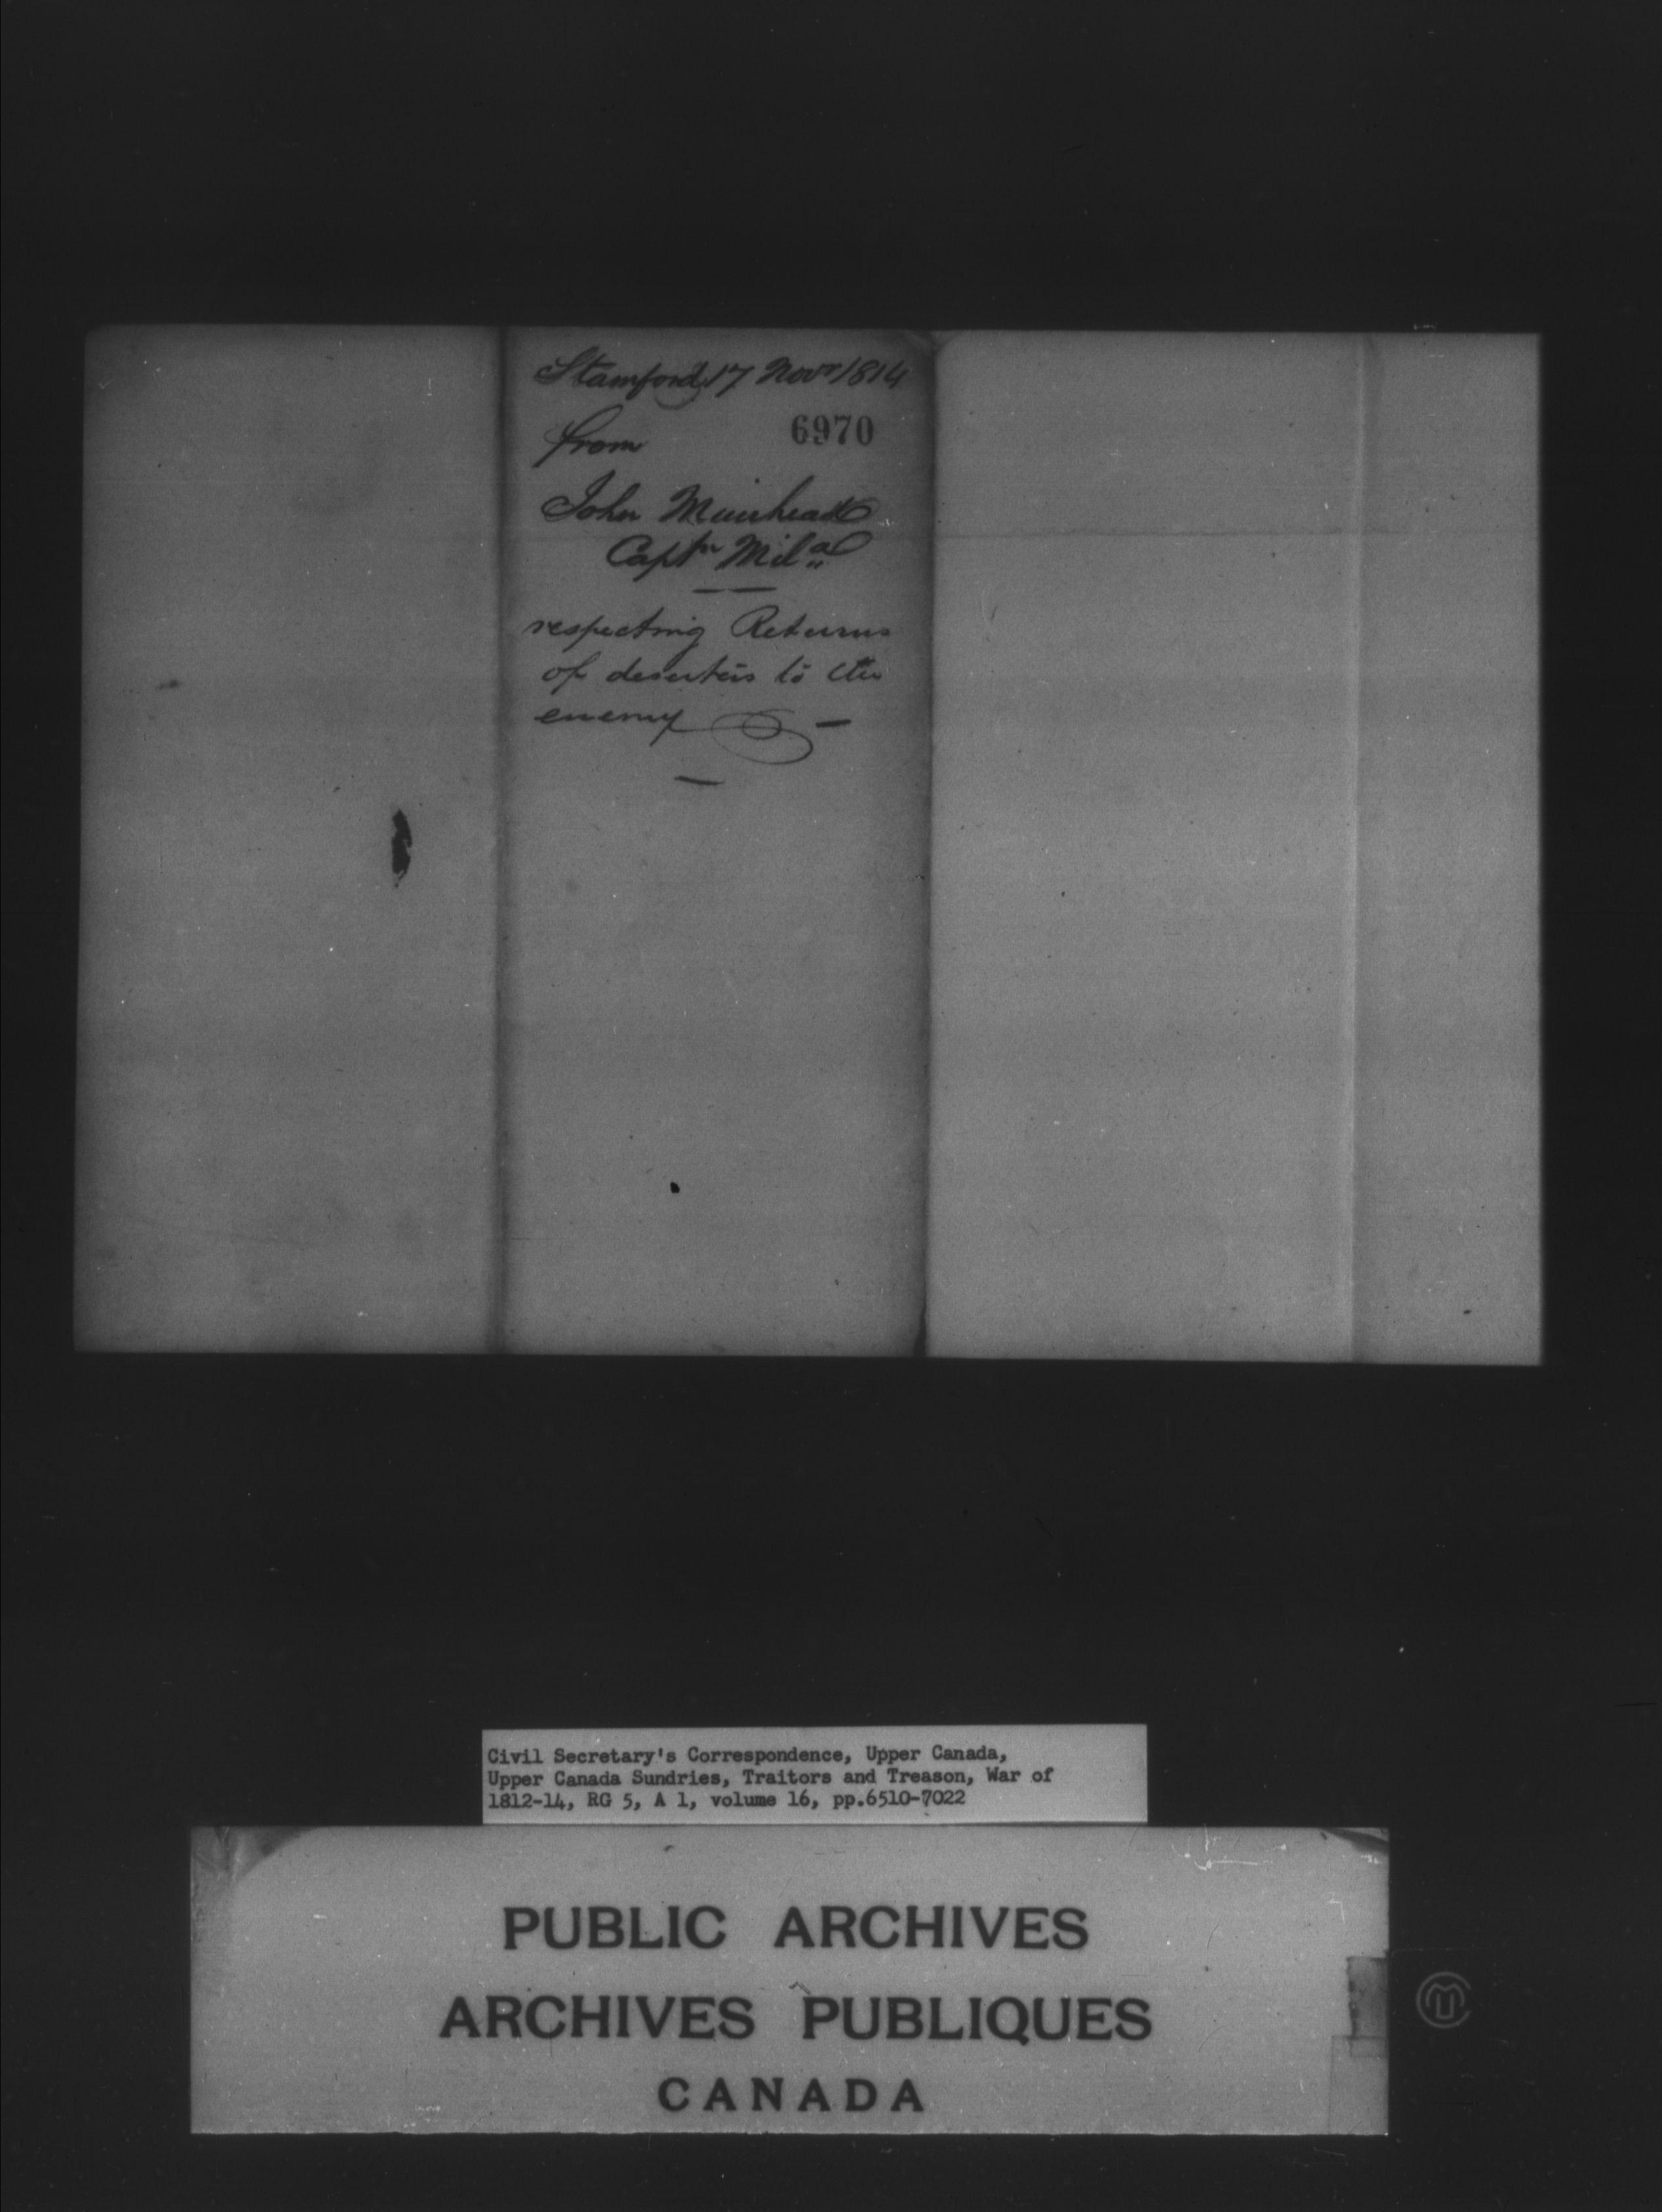 Stamford, 17 Novr 1814
6970
from
John Muirhead
Captn Mila
respecting Returns
of deserters to the
enemy
Civil Secretary's Correspondence, Upper Canada,
Upper Canada Sundries, Traitors and Treason, War of
1812-14, RG 5, A 1, volume 16, pp.6510-7022
PUBLIC ARCHIVES
ARCHIVES PUBLIQUES
CANADA